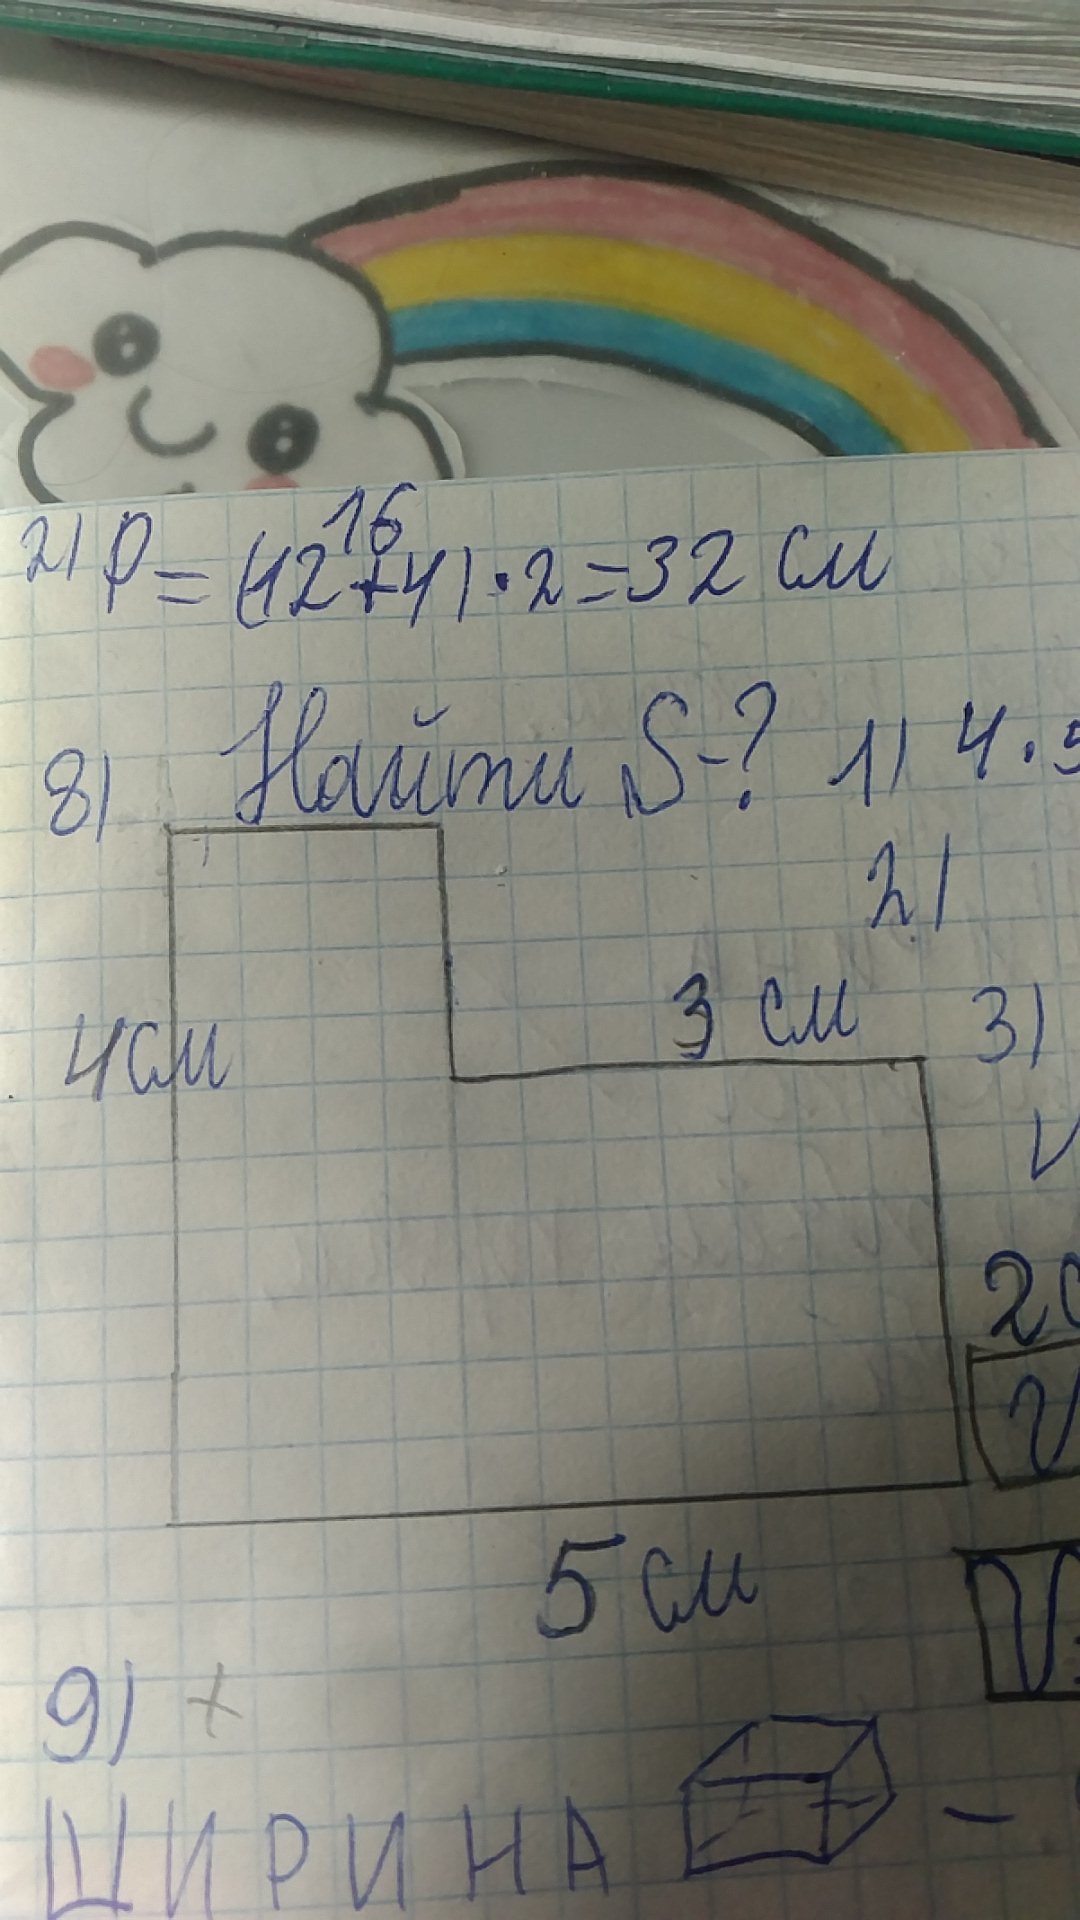 2) P = (12+4) · 2 = 32 см
16
8) Найти S-? 1) 4 · 5
2)
3 см 3)
4см
V
2
5 см
9) +
ШИРИНА -